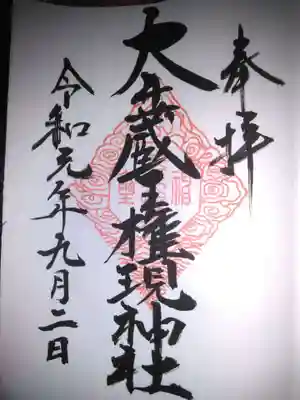 奉拝
大山蔵王権現神社
令和元年九月二日